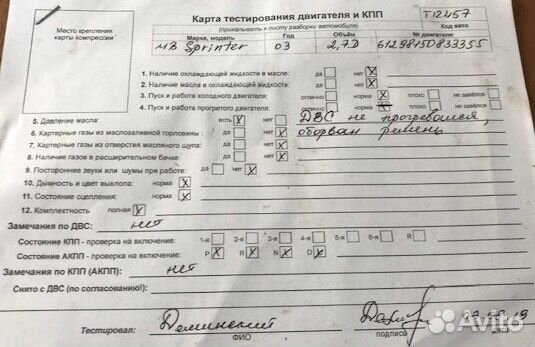 Место крепления
карты компрессии
Карта тестирования двигателя и КПП
(прикалывать к листу разборки автомобиля)
T12457
Код авто
Марка, модель Год Объём № двигателя
MB Sprinter 03 2,7D
1. Наличие охлаждающей жидкости в масле: да нет X
2. Наличие масла в охлаждающей жидкости: да нет X
3. Пуск и работа холодного двигателя: отлично норма X плохо не завёлся
4. Пуск и работа прогретого двигателя: отлично норма плохо не завёлся
5. Давление масла: есть X нет ДВС не прогревался,
6. Картерные газы из маслозаливной горловины: да нет X оборван ремень
7. Картерные газы из отверстия масляного щупа: да нет X
8. Наличие газов в расширительном бачке: да нет X
9. Посторонние звуки или шумы при работе: да нет X
10. Дымность и цвет выхлопа: норма X
11. Состояние сцепления: норма X
12. Комплектность полная X
Замечания по ДВС: нет
Состояние КПП - проверка на включение: 1-я 2-я 3-я 4-я 5-я 6-я R
Состояние АКПП - проверка на включение: P X R X N X D X
Замечания по КПП (АКПП): нет
Снято с ДВС (по согласованию!):
Тестировал: Деминский
ФИО подпись дата
Avito